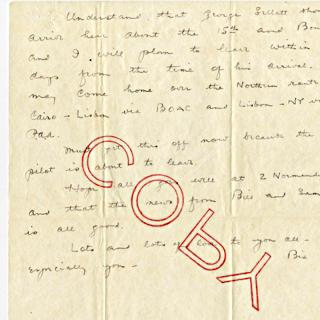 Understand that George Sillett sho
arrive hear about the 15th and Bon
and I will plan to leave within
days from the time of his arrival.
may come home over the Northern route
Cairo - Lisbon via BOAC and Lisbon - NY vi
PAA.
Must get this off now because the
pilot is about to leave.
Hope all goes well at 2 Normand
and that the news from Bill and Sam
is all good.
Lots and lots of love to you all -
Especially you -
COPY